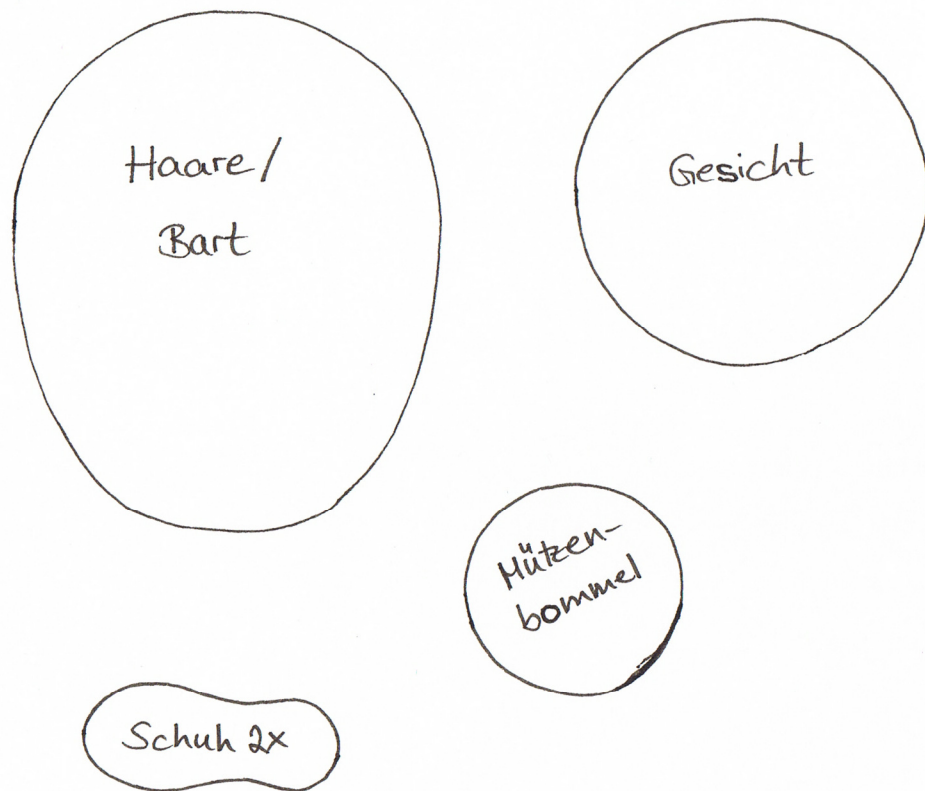 Haare/
Bart
Gesicht
Mützen-
bommel
Schuh 2x